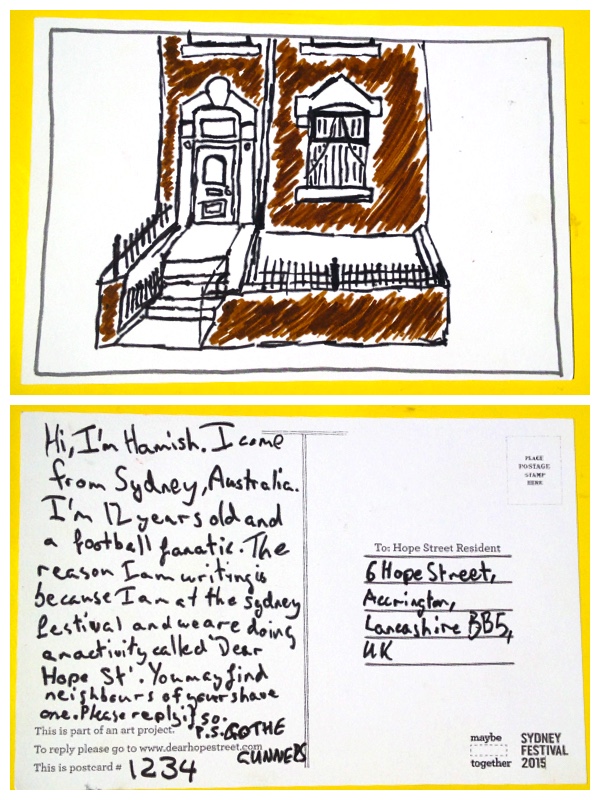 Hi, I'm Hamish. I come
from Sydney, Australia.
I'm 12 years old and
a football fanatic. The
reason I am writing is
because I am at the sydney
festival and we are doing
an activity called 'Dear
Hope St'. You may find
neighbours of yours have
one. Please reply if so.
P.S. GO THE
GUNNERS
This is part of an art project.
To reply please go to www.dearhopestreet.com
This is postcard # 1234
PLACE
POSTAGE
STAMP
HERE
To: Hope Street Resident
6 Hope Street,
Accrington,
Lancashire BB5,
UK
maybe
together
SYDNEY
FESTIVAL
2015